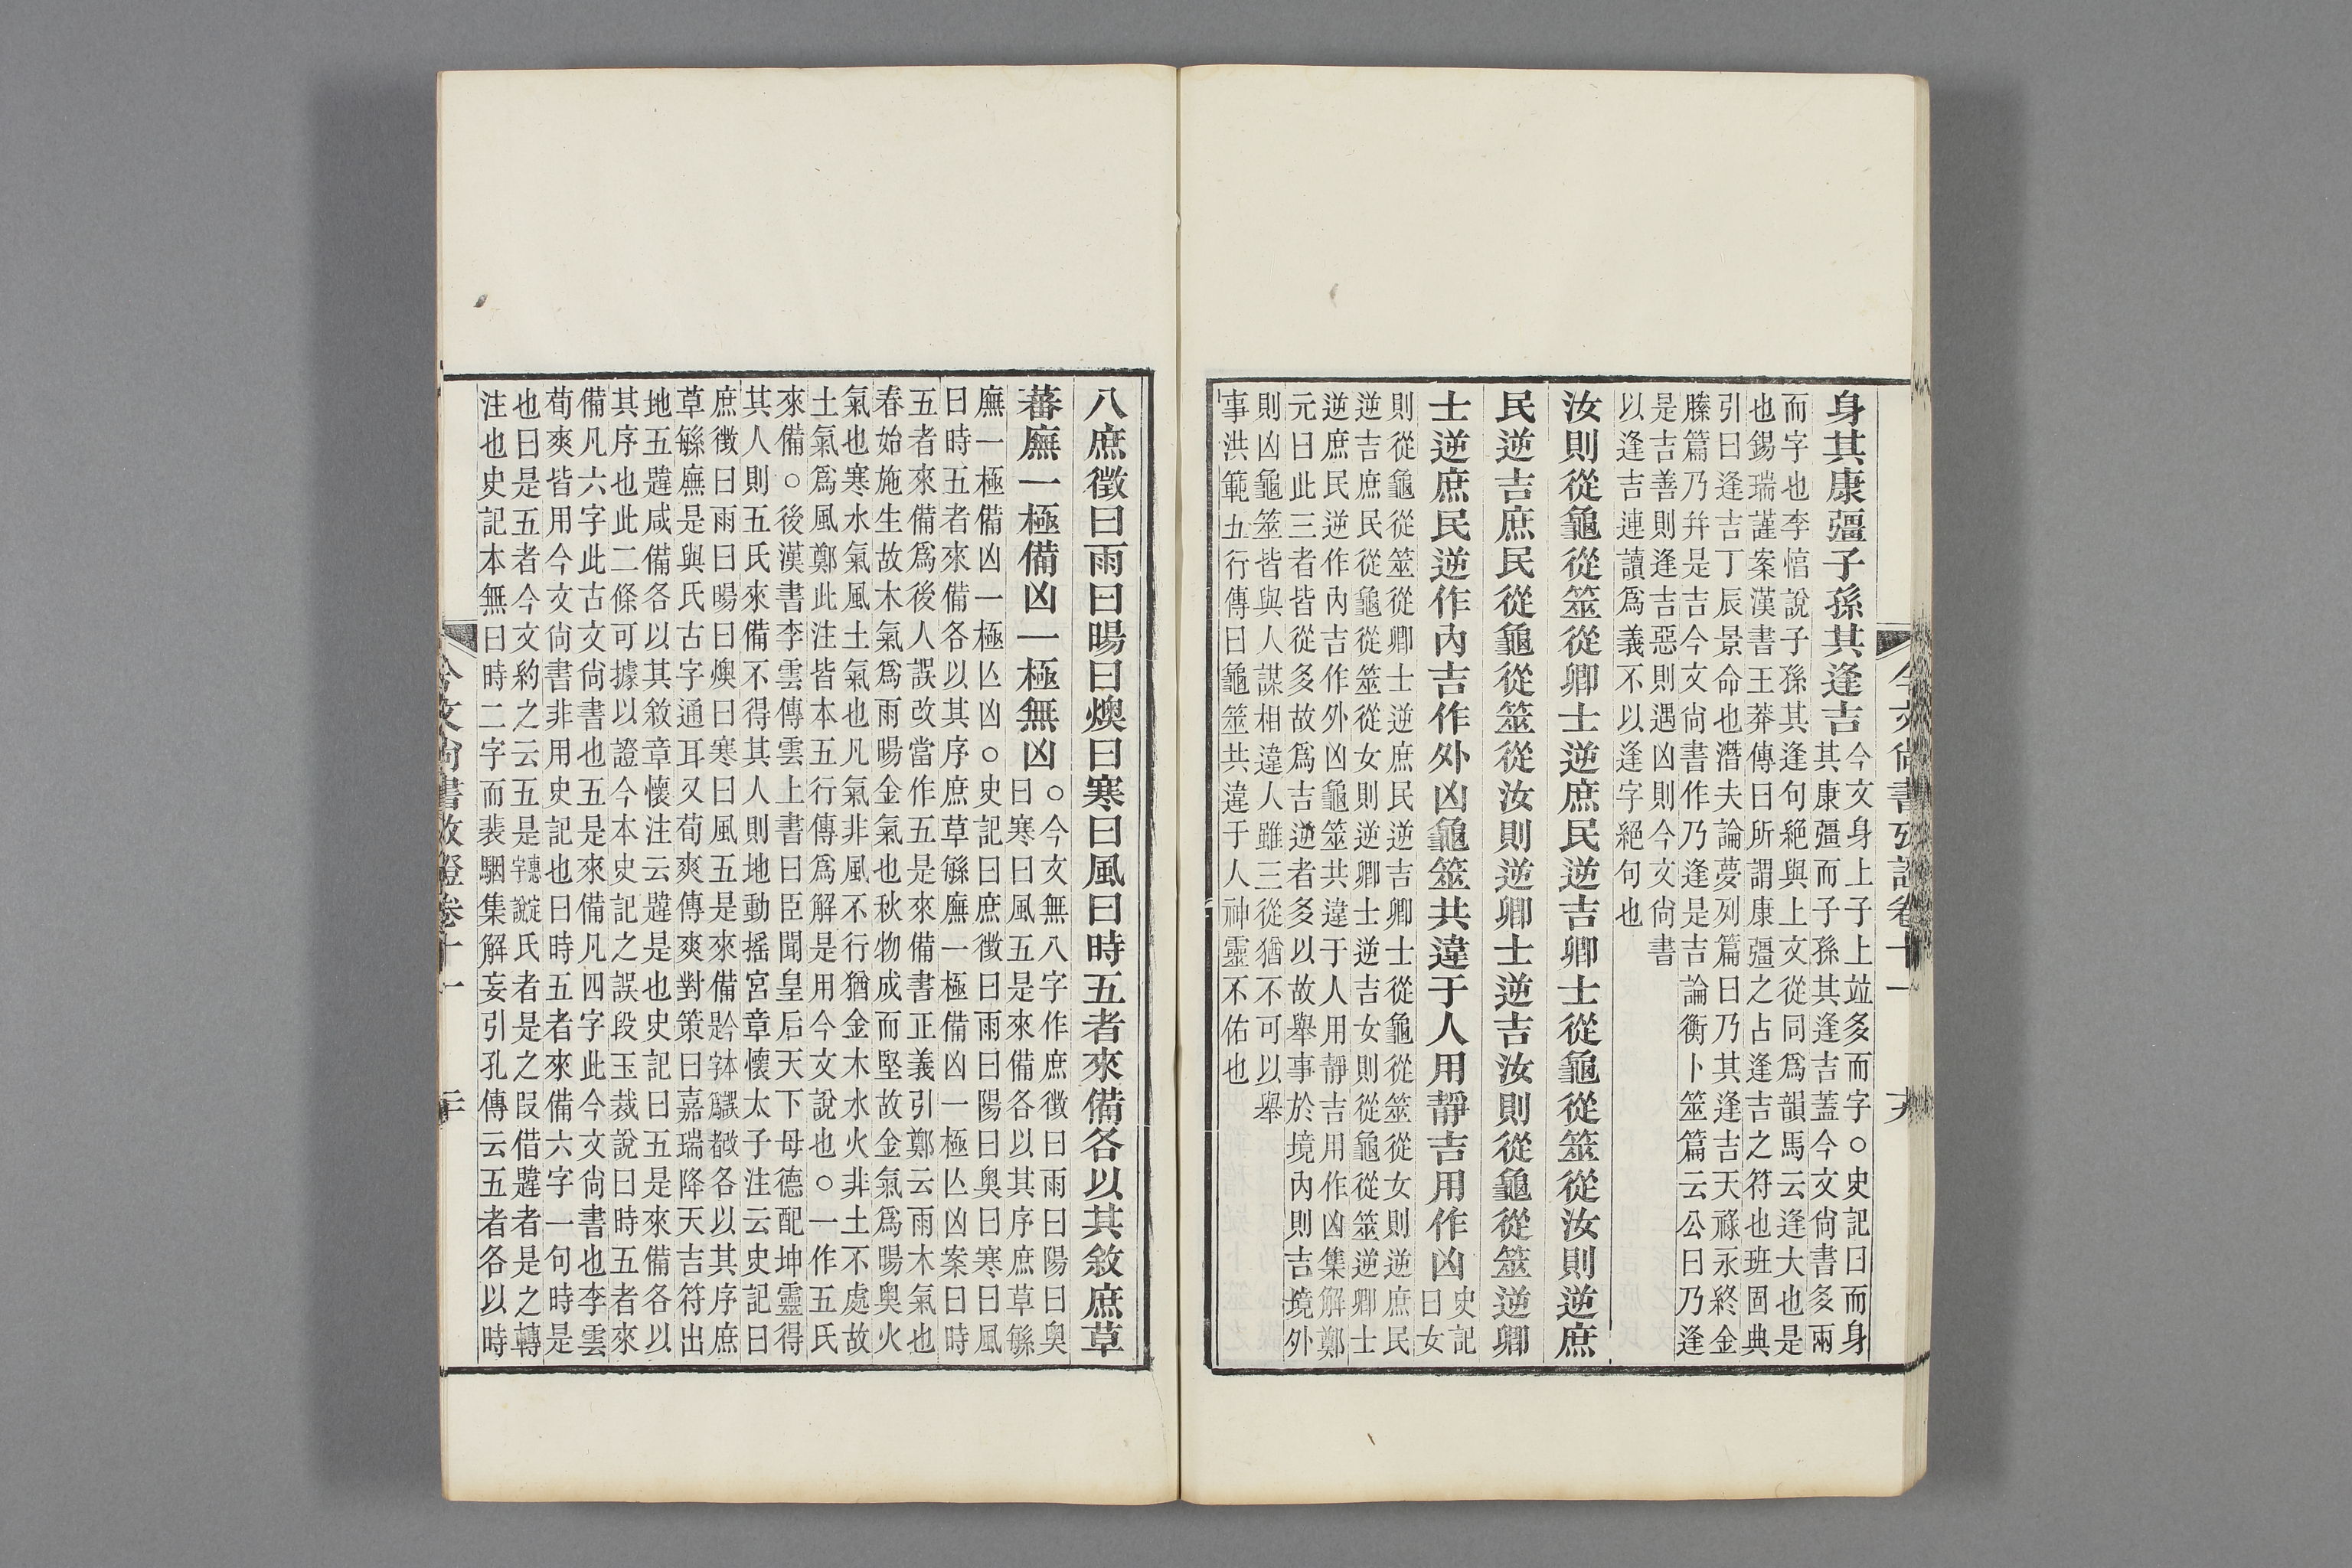 今文尚書攷證卷十一 十九
身其康彊子孫其逢吉
今文身上子上竝多而字○史記曰而身
其康彊而子孫其逢吉蓋今文尚書多兩
而字也李惇說子孫其逢句絕與上文從同爲韻馬云逢大也是
也錫瑞謹案漢書王莽傳曰所謂康彊之占逢吉之符也班固典
引曰逢吉丁辰景命也潛夫論夢列篇曰乃其逢吉天祿永終金
縢篇乃幷是吉今文尚書作乃逢是吉論衡卜筮篇云公曰乃逢
是吉善則逢吉惡則遇凶則今文尚書
以逢吉連讀爲義不以逢字絕句也
汝則從龜從筮從卿士逆庶民逆吉卿士從龜從筮從汝則逆庶
民逆吉庶民從龜從筮從汝則逆卿士逆吉汝則從龜從筮逆卿
士逆庶民逆作內吉作外凶龜筮共違于人用靜吉用作凶
史記
曰女
則從龜從筮從卿士逆庶民逆吉卿士從龜從筮從女則逆庶民
逆吉庶民從龜從筮從女則逆卿士逆吉女則從龜從筮逆卿士
逆庶民逆作內吉作外凶龜筮共違于人用靜吉用作凶集解鄭
元曰此三者皆從多故爲吉逆者多以故舉事於境內則吉境外
則凶龜筮皆與人謀相違人雖三從猶不可以舉
事洪範五行傳曰龜筮共違于人神靈不佑也
八庶徵曰雨曰暘曰燠曰寒曰風曰時五者來備各以其敘庶草
蕃廡一極備凶一極無凶
○今文無八字作庶徵曰雨曰陽曰奧
曰寒曰風五是來備各以其序庶草繇
廡一極備凶一極亾凶○史記曰庶徵曰雨曰陽曰奧曰寒曰風
曰時五者來備各以其序庶草繇廡一極備凶一極亾凶案曰時
五者來備爲後人誤改當作五是來備書正義引鄭云雨木氣也
春始施生故木氣爲雨暘金氣也秋物成而堅故金氣爲暘奧火
氣也寒水氣風土氣也凡氣非風不行猶金木水火非土不處故
土氣爲風鄭此注皆本五行傳爲解是用今文說也○一作五氏
來備○後漢書李雲傳雲上書曰臣聞皇后天下母德配坤靈得
其人則五氏來備不得其人則地動搖宮章懷太子注云史記曰
庶徵曰雨曰暘曰燠曰寒曰風五是來備各以其序庶
草繇廡是與氏古字通耳又荀爽傳爽對策曰嘉瑞降天吉符出
地五韙咸備各以其敘章懷注云韙是也史記曰五是來備各以
其序也此二條可據以證今本史記之誤段玉裁說曰時五者來
備凡六字此古文尚書也五是來備凡四字此今文尚書也李雲
荀爽皆用今文尚書非用史記也曰時五者來備六字一句時是
也曰是五者今文約之云五是氏者是之叚借韙者是之轉
注也史記本無曰時二字而裴駰集解妄引孔傳云五者各以時
今文尚書攷證卷十一 二十